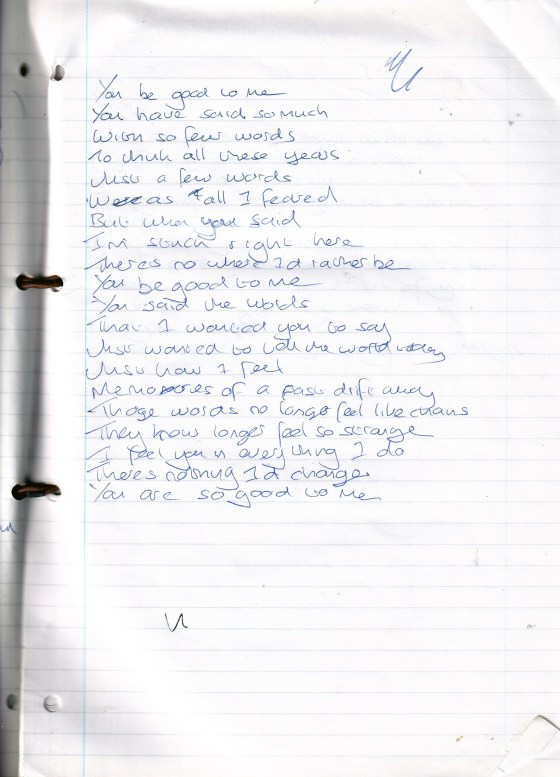 You be good to me
You have said so much
With so few words
To think all these years
Just a few words
Was all I feared
But when you said
I'm stuck right here
There's no where I'd rather be
You be good to me
You said the words
That I wanted you to say
Just wanted to tell the world today
Just how I feel
Memories of a past drift away
Those words no longer feel like chains
They know longer feel so strange
I feel you in everything I do
There's nothing I'd change
You are so good to me